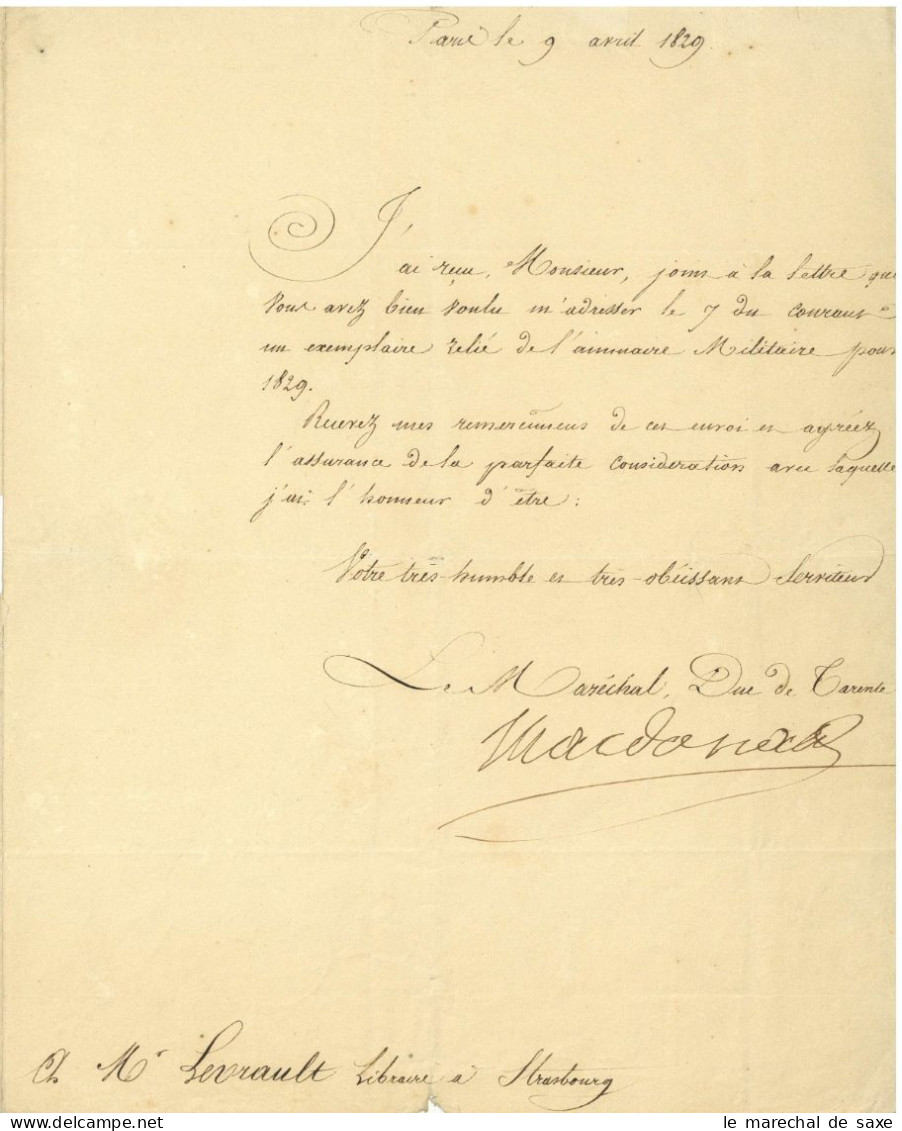 Paris le 9 avril 1829.
J'ai reçu, Monsieur, joint à la lettre que
vous avez bien voulu m'adresser le 7 du courant
un exemplaire relié de l'annuaire Militaire pour
1829.
Recevez mes remercimens de cet envoi et agréez
l'assurance de la parfaite considération avec laquelle
j'ai l'honneur d'être :
Votre très-humble et très-obéissant Serviteur
Le Maréchal, Duc de Tarente
Macdonald
A Mr Levrault Libraire à Strasbourg
le marechal de saxe